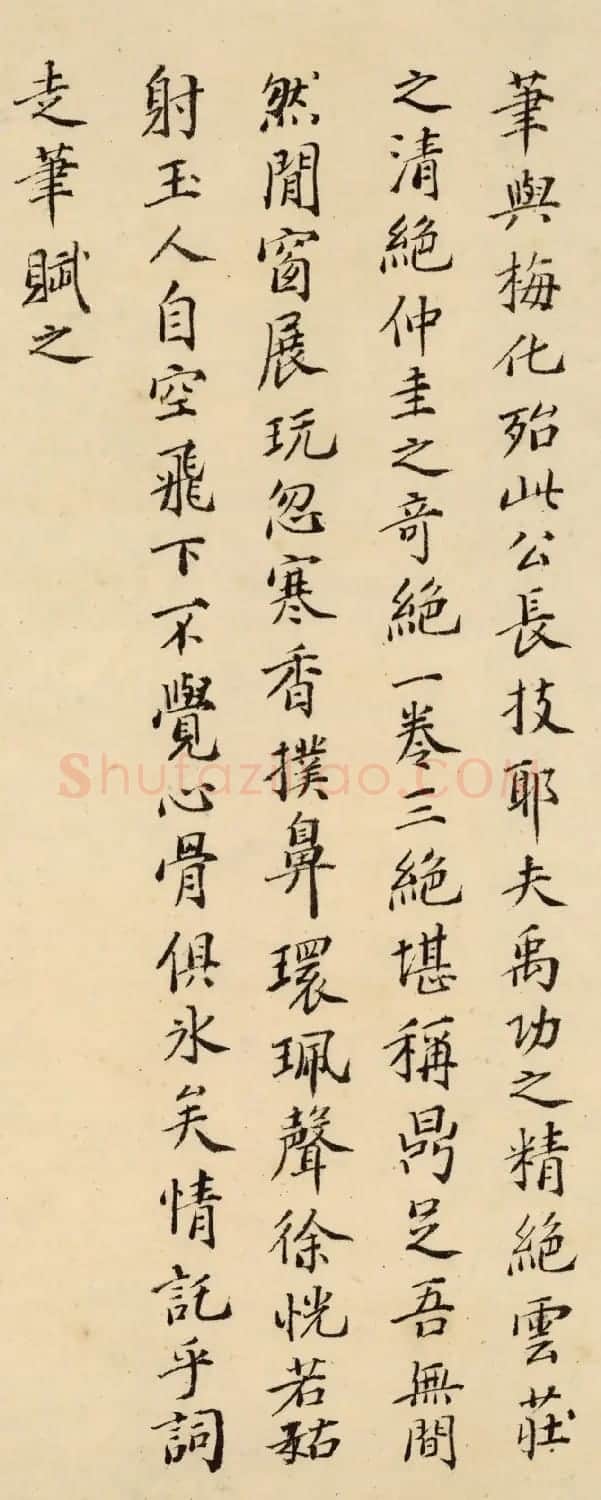 筆與梅化殆此公長技耶夫禹功之精絕雲莊
之清絕仲圭之奇絕一卷三絕堪稱鼎足吾無間
然閒窗展玩忽寒香撲鼻環珮聲徐恍若菇
射玉人自空飛下不覺心骨俱氷矣情託乎詞
走筆賦之
Shutazhao.COM